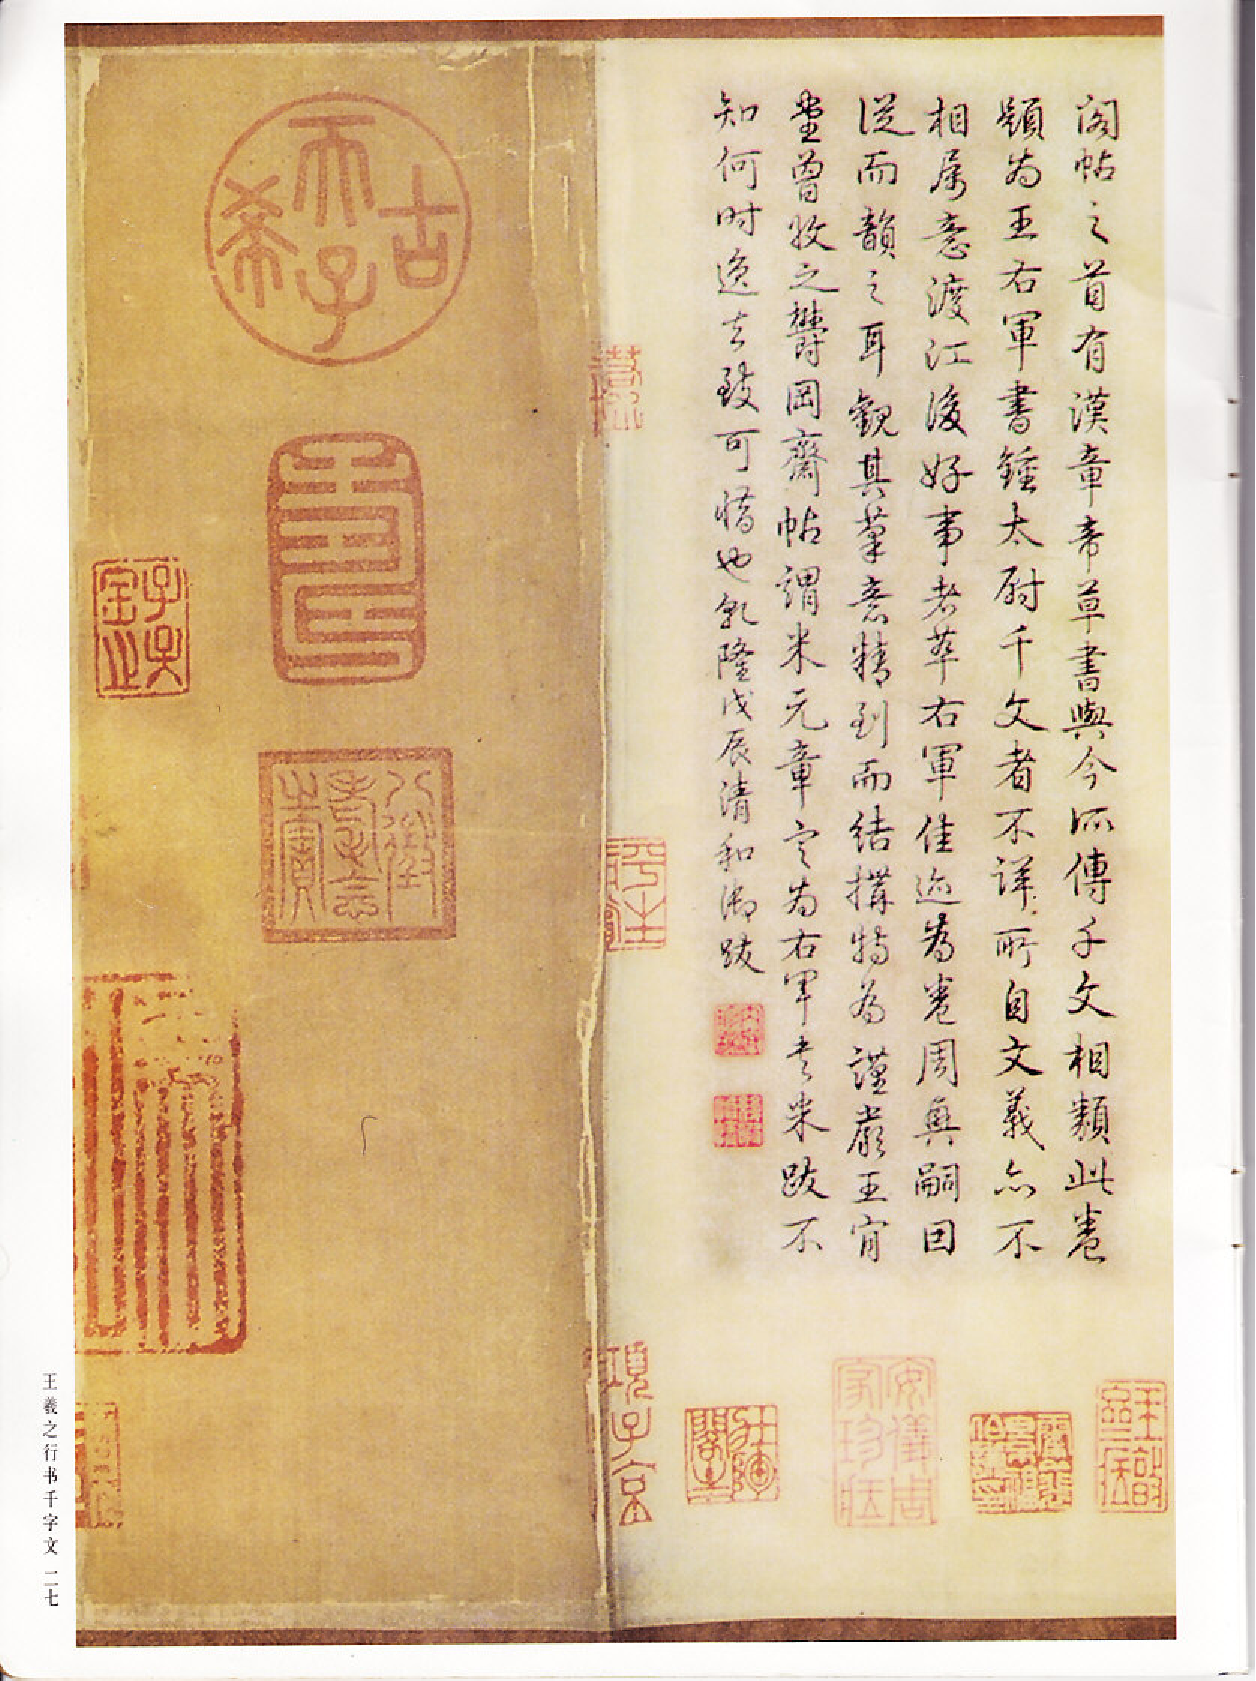 阁帖之首有漢章帝草書與今所傳千文相類此卷
題为王右軍書鍾太尉千文者不詳所自文義亦不
相属意渡江後好事者萃右軍佳迹為卷周興嗣因
從而韻之耳觀其筆意精到而结構特为謹嚴王肯
堂曾牧之欝岡齋帖謂米元章定为右軍書米跋不
知何时逸去致可惜也乾隆戊辰清和御跋
古希天子
壽
八徵耄念之寶
項子京
安儀周家珍藏
王羲之行书千字文 二七